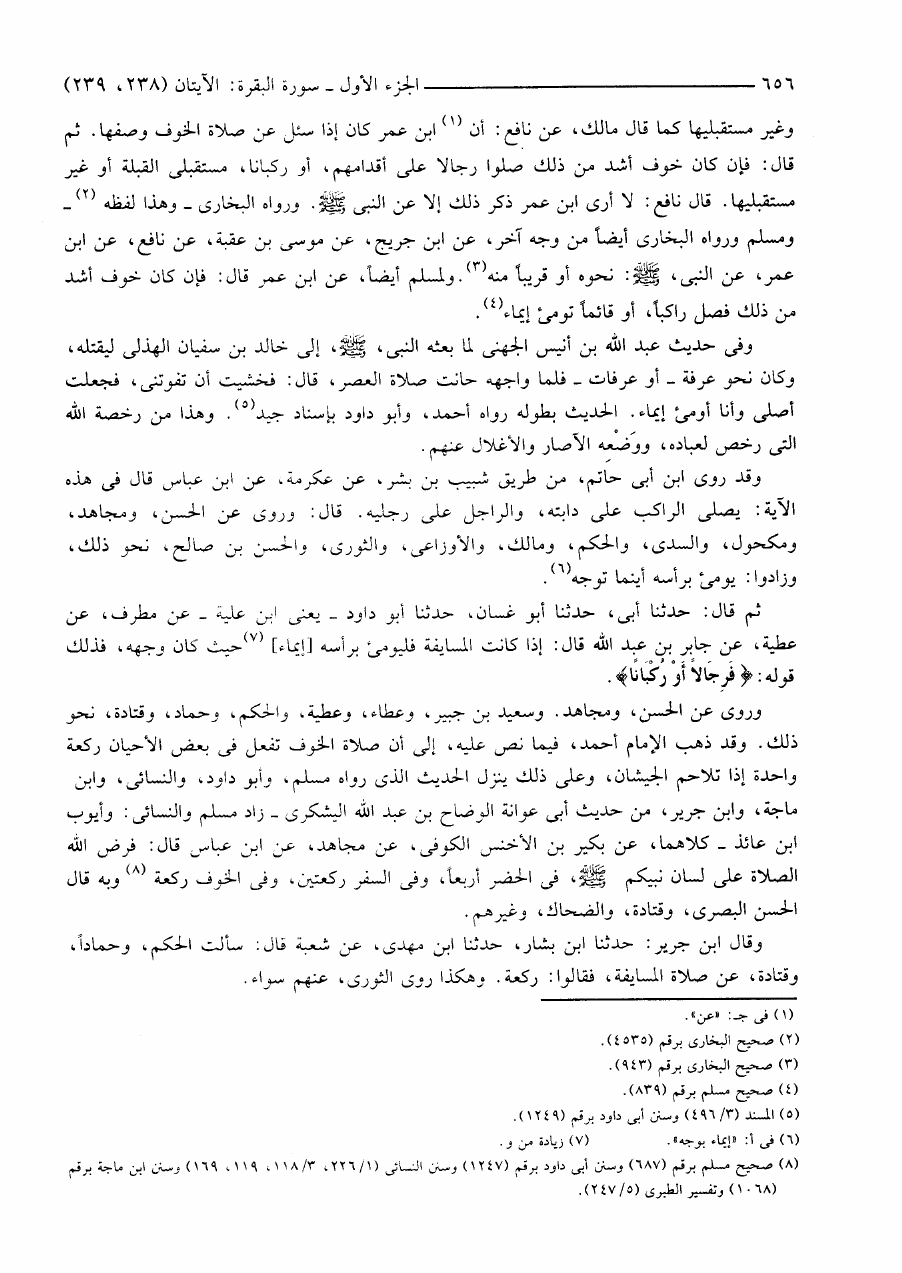 ٦٥٦ ــــــــــ الجزء الأول ـ سورة البقرة: الآيتان (٢٣٨، ٢٣٩)
وغير مستقبليها كما قال مالك، عن نافع: أن (١) ابن عمر كان إذا سئل عن صلاة الخوف وصفها. ثم
قال: فإن كان خوف أشد من ذلك صلوا رجالا على أقدامهم، أو ركبانا، مستقبلى القبلة أو غير
مستقبليها. قال نافع: لا أرى ابن عمر ذكر ذلك إلا عن النبى ﷺ. ورواه البخارى ـ وهذا لفظه (٢) ـ
ومسلم ورواه البخارى أيضاً من وجه آخر، عن ابن جريج، عن موسى بن عقبة، عن نافع، عن ابن
عمر، عن النبى، ﷺ: نحوه أو قريباً منه(٣). ولمسلم أيضاً، عن ابن عمر قال: فإن كان خوف أشد
من ذلك فصل راكباً، أو قائماً تومئ إيماء(٤).
وفى حديث عبد الله بن أنيس الجهنى لما بعثه النبى، ﷺ، إلى خالد بن سفيان الهذلى ليقتله،
وكان نحو عرفة ـ أو عرفات ـ فلما واجهه حانت صلاة العصر، قال: فخشيت أن تفوتنى، فجعلت
أصلى وأنا أومئ إيماء. الحديث بطوله رواه أحمد، وأبو داود بإسناد جيد(٥). وهذا من رخصة الله
التى رخص لعباده، ووَضْعِه الآصار والأغلال عنهم.
وقد روى ابن أبى حاتم، من طريق شبيب بن بشر، عن عكرمة، عن ابن عباس قال فى هذه
الآية: يصلى الراكب على دابته، والراجل على رجليه. قال: وروى عن الحسن، ومجاهد،
ومكحول، والسدى، والحكم، ومالك، والأوزاعى، والثورى، والحسن بن صالح، نحو ذلك،
وزادوا: يومئ برأسه أينما توجه(٦).
ثم قال: حدثنا أبى، حدثنا أبو غسان، حدثنا أبو داود ـ يعنى ابن علية ـ عن مطرف، عن
عطية، عن جابر بن عبد الله قال: إذا كانت المسايفة فليومئ برأسه [إيماء] (٧)حيث كان وجهه، فذلك
قوله: ﴿ فَرِجَالاً أَوْ رُكْبَانًا﴾ .
وروى عن الحسن، ومجاهد. وسعيد بن جبير، وعطاء، وعطية، والحكم، وحماد، وقتادة، نحو
ذلك. وقد ذهب الإمام أحمد، فيما نص عليه، إلى أن صلاة الخوف تفعل فى بعض الأحيان ركعة
واحدة إذا تلاحم الجيشان، وعلى ذلك ينزل الحديث الذى رواه مسلم، وأبو داود، والنسائى، وابن
ماجة، وابن جرير، من حديث أبى عوانة الوضاح بن عبد الله اليشكرى ـ زاد مسلم والنسائى: وأيوب
ابن عائذ ـ كلاهما، عن بكير بن الأخنس الكوفى، عن مجاهد، عن ابن عباس قال: فرض الله
الصلاة على لسان نبيكم ﷺ، فى الحضر أربعاً، وفى السفر ركعتين، وفى الخوف ركعة (٨) وبه قال
الحسن البصرى، وقتادة، والضحاك، وغيرهم.
وقال ابن جرير: حدثنا ابن بشار، حدثنا ابن مهدى، عن شعبة قال: سألت الحكم، وحماداً،
وقتادة، عن صلاة المسايفة، فقالوا: ركعة. وهكذا روى الثورى، عنهم سواء.
(١) فى جـ: «عن».
(٢) صحيح البخارى برقم (٤٥٣٥).
(٣) صحيح البخارى برقم (٩٤٣).
(٤) صحيح مسلم برقم (٨٣٩).
(٥) المسند (٣/ ٤٩٦) وسنن أبى داود برقم (١٢٤٩).
(٦) فى أ: «إيماء بوجه». (٧) زيادة من و.
(٨) صحيح مسلم برقم (٦٨٧) وسنن أبى داود برقم (١٢٤٧) وسنن النسائى (١/ ٢٢٦، ٣/ ١١٨، ١١٩، ١٦٩) وسنن ابن ماجة برقم
(١٠٦٨) وتفسير الطبرى (٥/ ٢٤٧).